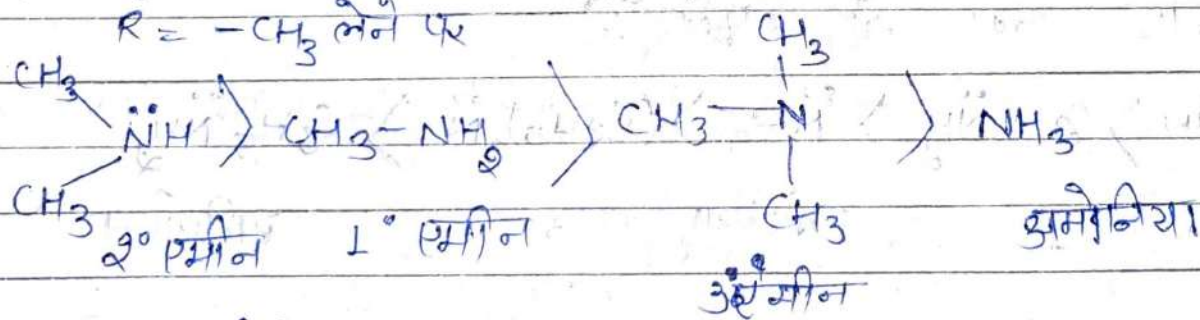 R = -CH3 लेने पर
CH3 CH3
N̈H > CH3-NH2 > CH3-N > NH3
CH3 CH3
2° एमीन 1° एमीन 3° एमीन अमोनिया